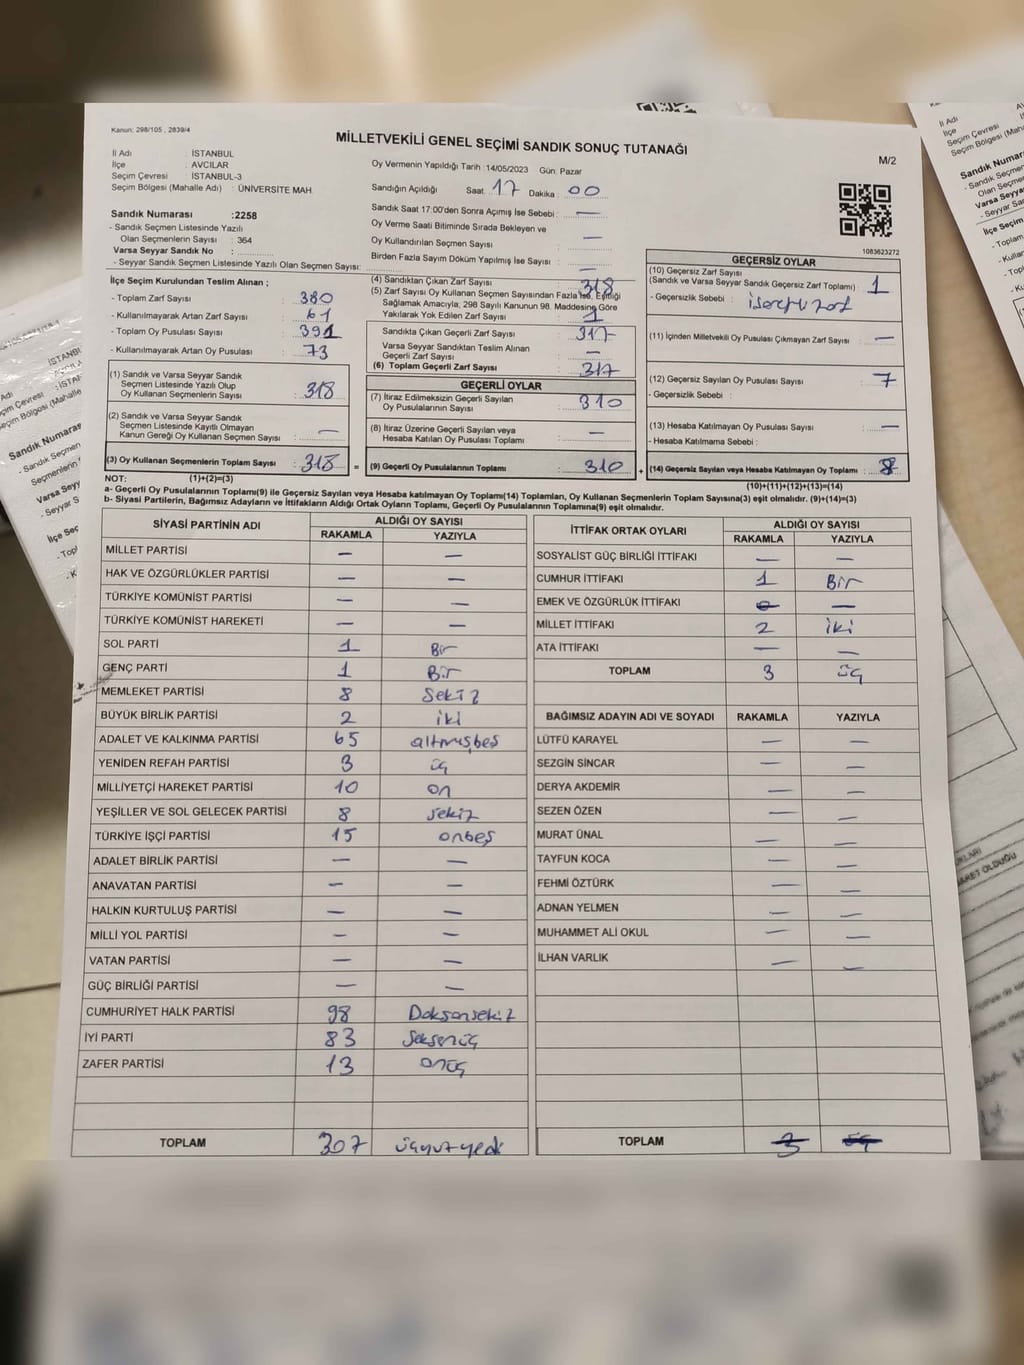 Kanun: 298/105 , 2839/4
MİLLETVEKİLİ GENEL SEÇİMİ SANDIK SONUÇ TUTANAĞI
M/2
İl Adı : İSTANBUL
İlçe : AVCILAR
Seçim Çevresi : İSTANBUL-3
Seçim Bölgesi (Mahalle Adı) : ÜNİVERSİTE MAH.
Sandık Numarası :2258
- Sandık Seçmen Listesinde Yazılı
Olan Seçmenlerin Sayısı : 364
Varsa Seyyar Sandık No :
- Seyyar Sandık Seçmen Listesinde Yazılı Olan Seçmen Sayısı:
Oy Vermenin Yapıldığı Tarih :14/05/2023 Gün: Pazar
Sandığın Açıldığı Saat: 17 Dakika : 00
Sandık Saat 17:00'den Sonra Açımış İse Sebebi : —
Oy Verme Saati Bitiminde Sırada Bekleyen ve
Oy Kullandırılan Seçmen Sayısı : —
Birden Fazla Sayım Döküm Yapılmış İse Sayısı : —
1083623272
İlçe Seçim Kurulundan Teslim Alınan ;
- Toplam Zarf Sayısı : 380
- Kullanılmayarak Artan Zarf Sayısı : 61
- Toplam Oy Pusulası Sayısı : 391
- Kullanılmayarak Artan Oy Pusulası : 73
(1) Sandık ve Varsa Seyyar Sandık
Seçmen Listesinde Yazılı Olup
Oy Kullanan Seçmenlerin Sayısı : 318
(2) Sandık ve Varsa Seyyar Sandık
Seçmen Listesinde Kayıtlı Olmayan
Kanun Gereği Oy Kullanan Seçmen Sayısı : —
(3) Oy Kullanan Seçmenlerin Toplam Sayısı : 318 =
(4) Sandıktan Çıkan Zarf Sayısı : 318
(5) Zarf Sayısı Oy Kullanan Seçmen Sayısından Fazla İse, Eşitliği
Sağlamak Amacıyla, 298 Sayılı Kanunun 98. Maddesine Göre
Yakılarak Yok Edilen Zarf Sayısı : 1
Sandıkta Çıkan Geçerli Zarf Sayısı : 317
Varsa Seyyar Sandıktan Teslim Alınan
Geçerli Zarf Sayısı : —
(6) Toplam Geçerli Zarf Sayısı : 317
GEÇERLİ OYLAR
(7) İtiraz Edilmeksizin Geçerli Sayılan
Oy Pusulalarının Sayısı : 310
(8) İtiraz Üzerine Geçerli Sayılan veya
Hesaba Katılan Oy Pusulası Toplamı : —
(9) Geçerli Oy Pusulalarının Toplamı : 310 +
GEÇERSİZ OYLAR
(10) Geçersiz Zarf Sayısı
(Sandık ve Varsa Seyyar Sandık Geçersiz Zarf Toplamı) : 1
- Geçersizlik Sebebi :
(11) İçinden Milletvekili Oy Pusulası Çıkmayan Zarf Sayısı : —
(12) Geçersiz Sayılan Oy Pusulası Sayısı : 7
- Geçersizlik Sebebi :
(13) Hesaba Katılmayan Oy Pusulası Sayısı : —
- Hesaba Katılmama Sebebi :
(14) Geçersiz Sayılan veya Hesaba Katılmayan Oy Toplamı : 8
NOT: (1)+(2)=(3)
(10)+(11)+(12)+(13)=(14)
a- Geçerli Oy Pusulalarının Toplamı(9) ile Geçersiz Sayılan veya Hesaba katılmayan Oy Toplamı(14) Toplamları, Oy Kullanan Seçmenlerin Toplam Sayısına(3) eşit olmalıdır. (9)+(14)=(3)
b- Siyasi Partilerin, Bağımsız Adayların ve İttifakların Aldığı Ortak Oyların Toplamı, Geçerli Oy Pusulalarının Toplamına(9) eşit olmalıdır.
SİYASİ PARTİNİN ADI ALDIĞI OY SAYISI
RAKAMLA YAZIYLA
MİLLET PARTİSİ — —
HAK VE ÖZGÜRLÜKLER PARTİSİ — —
TÜRKİYE KOMÜNİST PARTİSİ — —
TÜRKİYE KOMÜNİST HAREKETİ — —
SOL PARTİ 1 Bir
GENÇ PARTİ 1 Bir
MEMLEKET PARTİSİ 8 Sekiz
BÜYÜK BİRLİK PARTİSİ 2 iki
ADALET VE KALKINMA PARTİSİ 65 altmışbeş
YENİDEN REFAH PARTİSİ 3 üç
MİLLİYETÇİ HAREKET PARTİSİ 10 on
YEŞİLLER VE SOL GELECEK PARTİSİ 8 sekiz
TÜRKİYE İŞÇİ PARTİSİ 15 onbeş
ADALET BİRLİK PARTİSİ — —
ANAVATAN PARTİSİ — —
HALKIN KURTULUŞ PARTİSİ — —
MİLLİ YOL PARTİSİ — —
VATAN PARTİSİ — —
GÜÇ BİRLİĞİ PARTİSİ — —
CUMHURİYET HALK PARTİSİ 98 Doksansekiz
İYİ PARTİ 83 Seksenüç
ZAFER PARTİSİ 13 onüç
TOPLAM 307 üçyüzyedi
İTTİFAK ORTAK OYLARI ALDIĞI OY SAYISI
RAKAMLA YAZIYLA
SOSYALİST GÜÇ BİRLİĞİ İTTİFAKI — —
CUMHUR İTTİFAKI 1 Bir
EMEK VE ÖZGÜRLÜK İTTİFAKI — —
MİLLET İTTİFAKI 2 iki
ATA İTTİFAKI — —
TOPLAM 3 üç
BAĞIMSIZ ADAYIN ADI VE SOYADI RAKAMLA YAZIYLA
LÜTFÜ KARAYEL — —
SEZGİN SİNCAR — —
DERYA AKDEMİR — —
SEZEN ÖZEN — —
MURAT ÜNAL — —
TAYFUN KOCA — —
FEHMİ ÖZTÜRK — —
ADNAN YELMEN — —
MUHAMMET ALİ OKUL — —
İLHAN VARLIK — —
TOPLAM 3 üç